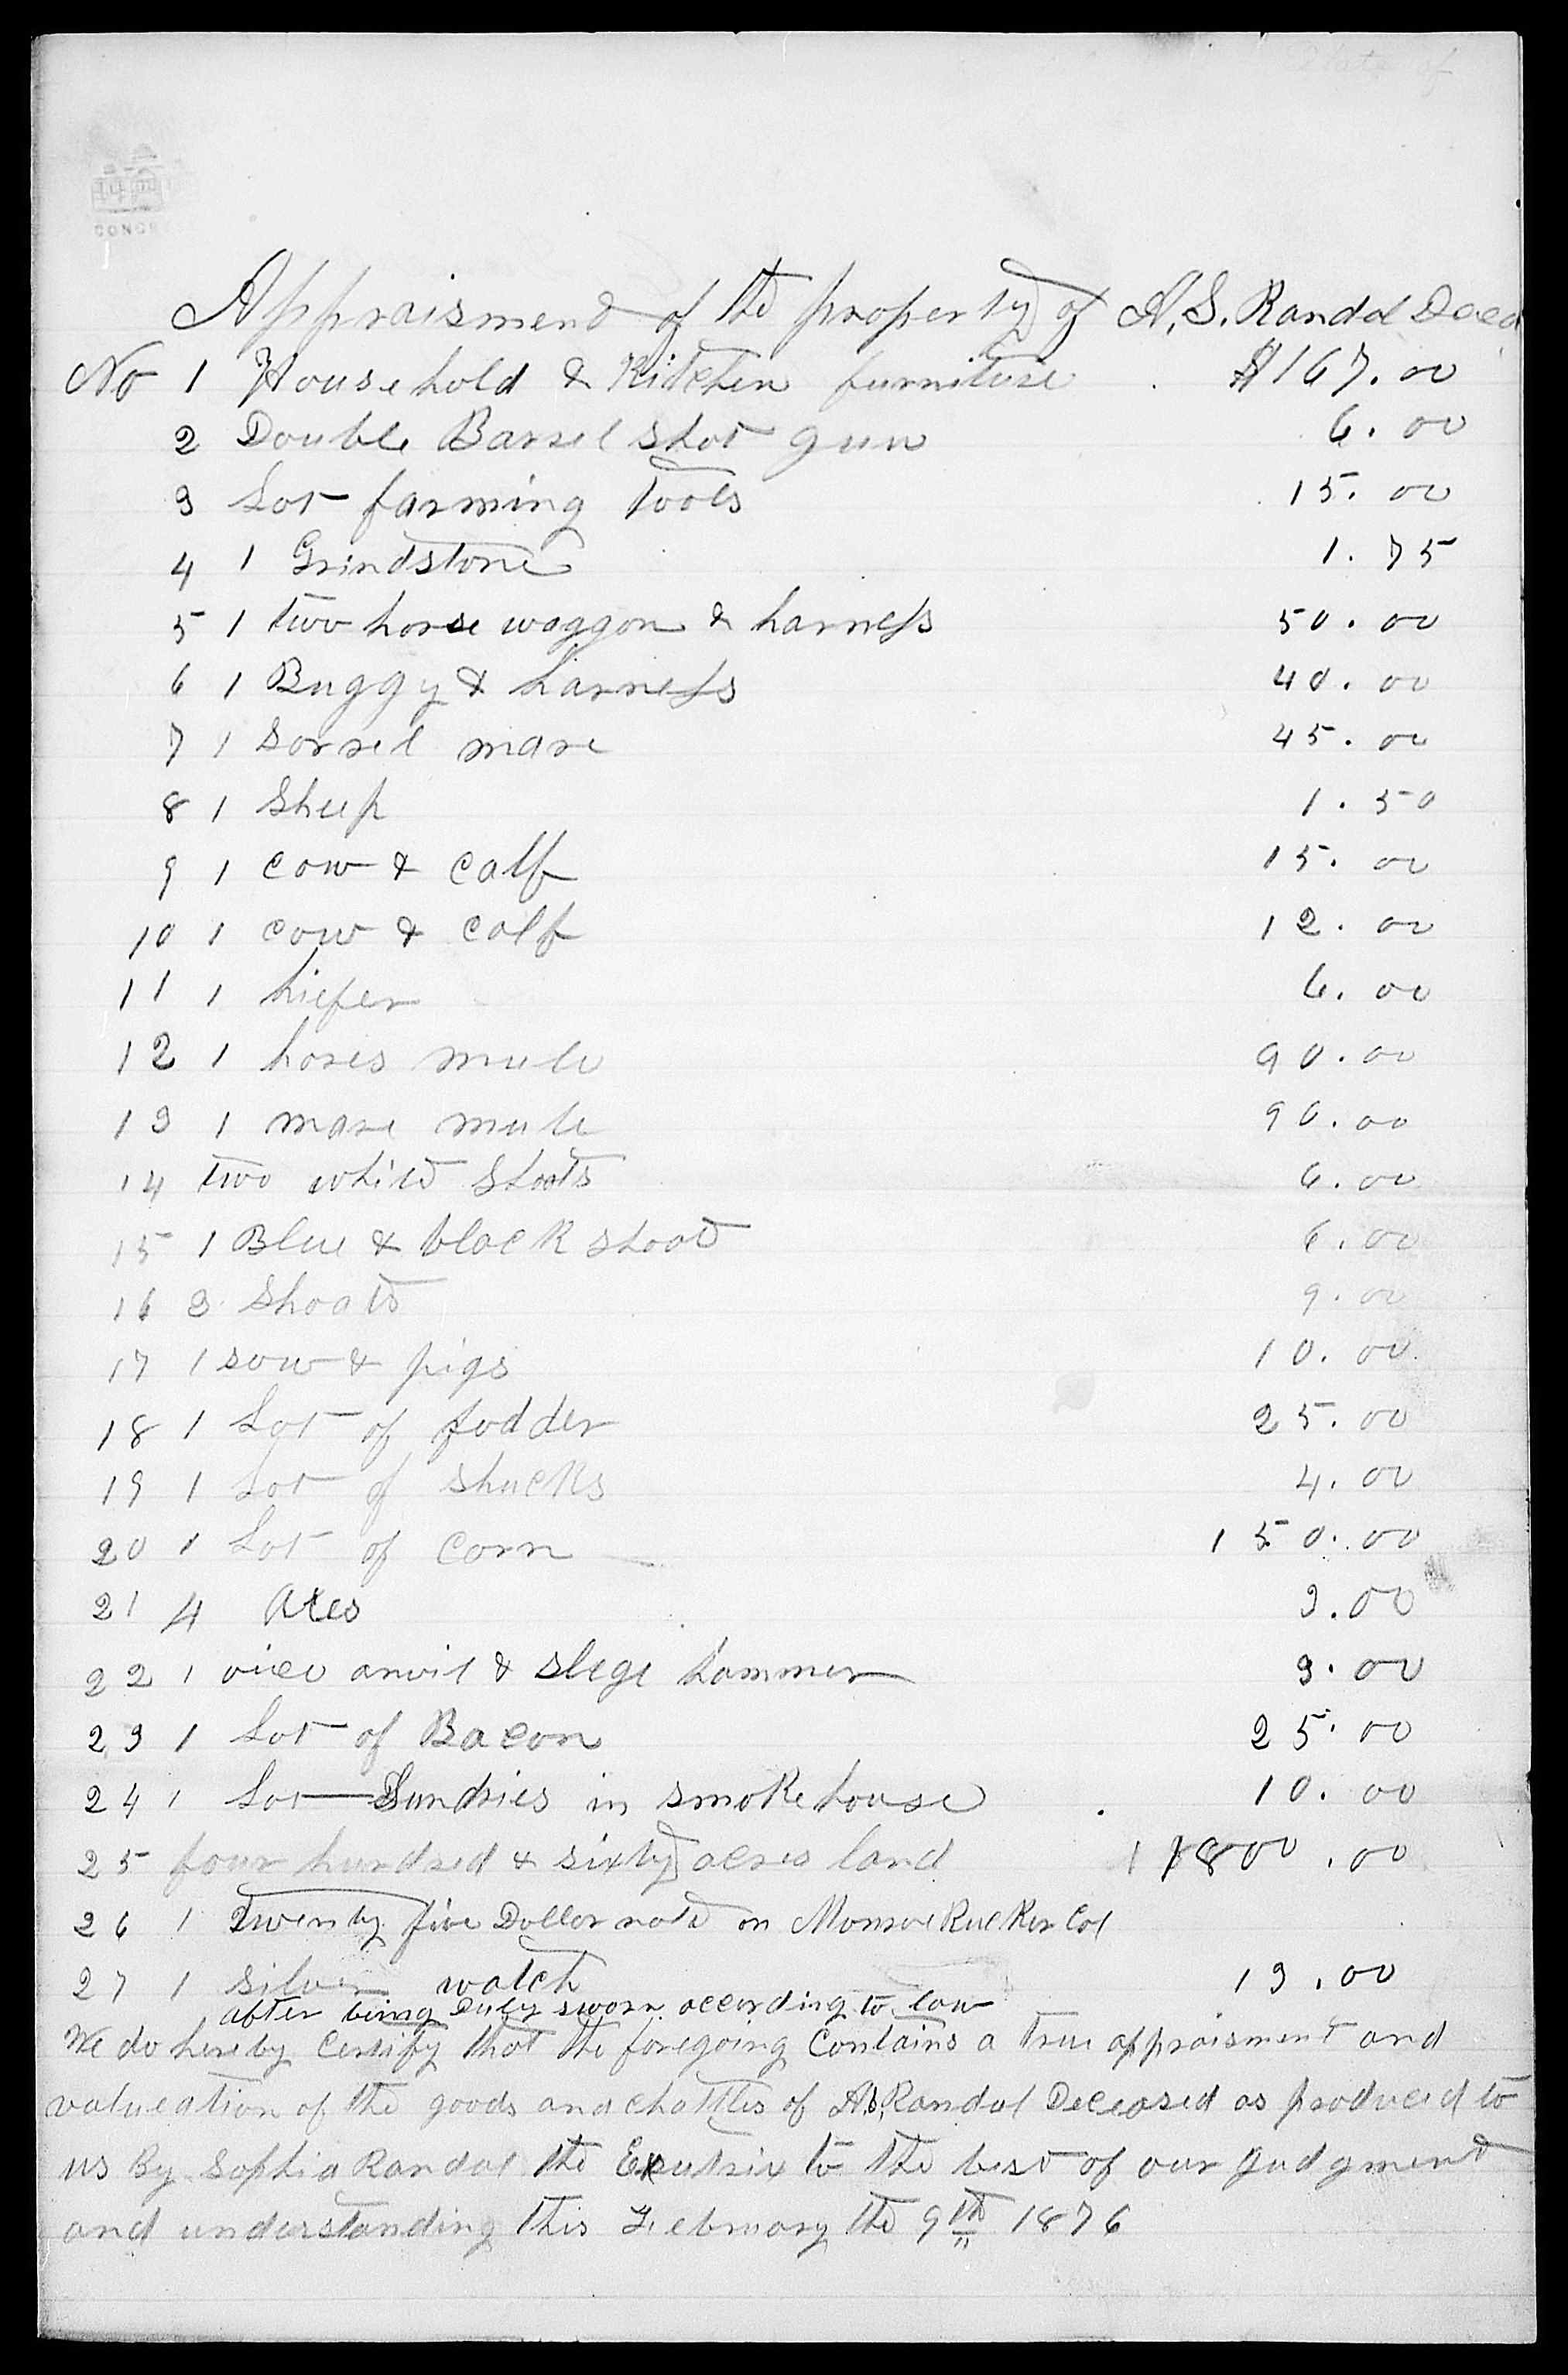 State of
CONGR
Appraisment of the property of A. S. Randol Decd
No 1 Household & Kitchen furniture $167.00
2 Double Barrel shot gun 6.00
3 Lot farming Tools 15.00
4 1 Grindstone 1.75
5 1 two horse waggon & harness 50.00
6 1 Buggy & harness 40.00
7 1 Sorrel mare 45.00
8 1 Sheep 1.50
9 1 cow & calf 15.00
10 1 cow & calf 12.00
11 1 hiefer 6.00
12 1 hores mule 90.00
13 1 mare mule 90.00
14 two white Shoats 6.00
15 1 Blue & black shoat 6.00
16 3 Shoats 9.00
17 1 sow & pigs 10.00
18 1 Lot of fodder 25.00
19 1 Lot of shucks 4.00
20 1 Lot of corn 150.00
21 4 Axes 3.00
22 1 vice anvil & slege hammer 3.00
23 1 Lot of Bacon 25.00
24 1 Lot Sundries in smoke house 10.00
25 four hundred & sixty acres land 1800.00
26 1 Twenty five Dollar note on Monroe Rucker Col
27 1 silver watch 13.00
after being duly sworn according to law
We do hereby Certify that the foregoing Contains a true appraisment and
valueation of the goods and chattles of A.S. Randol Deceased as produced to
us By Sophia Randol the Exutrix to the best of our Judgment
and understanding this February the 9th 1876